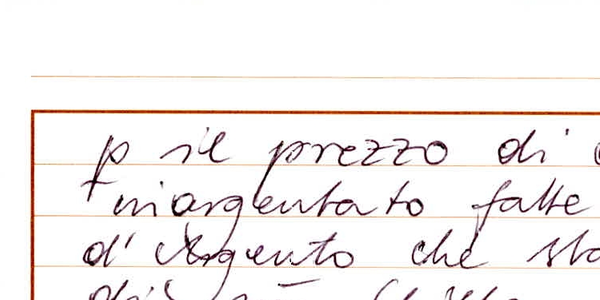 p il prezzo di
inargentato fatte
d'Argento che sta